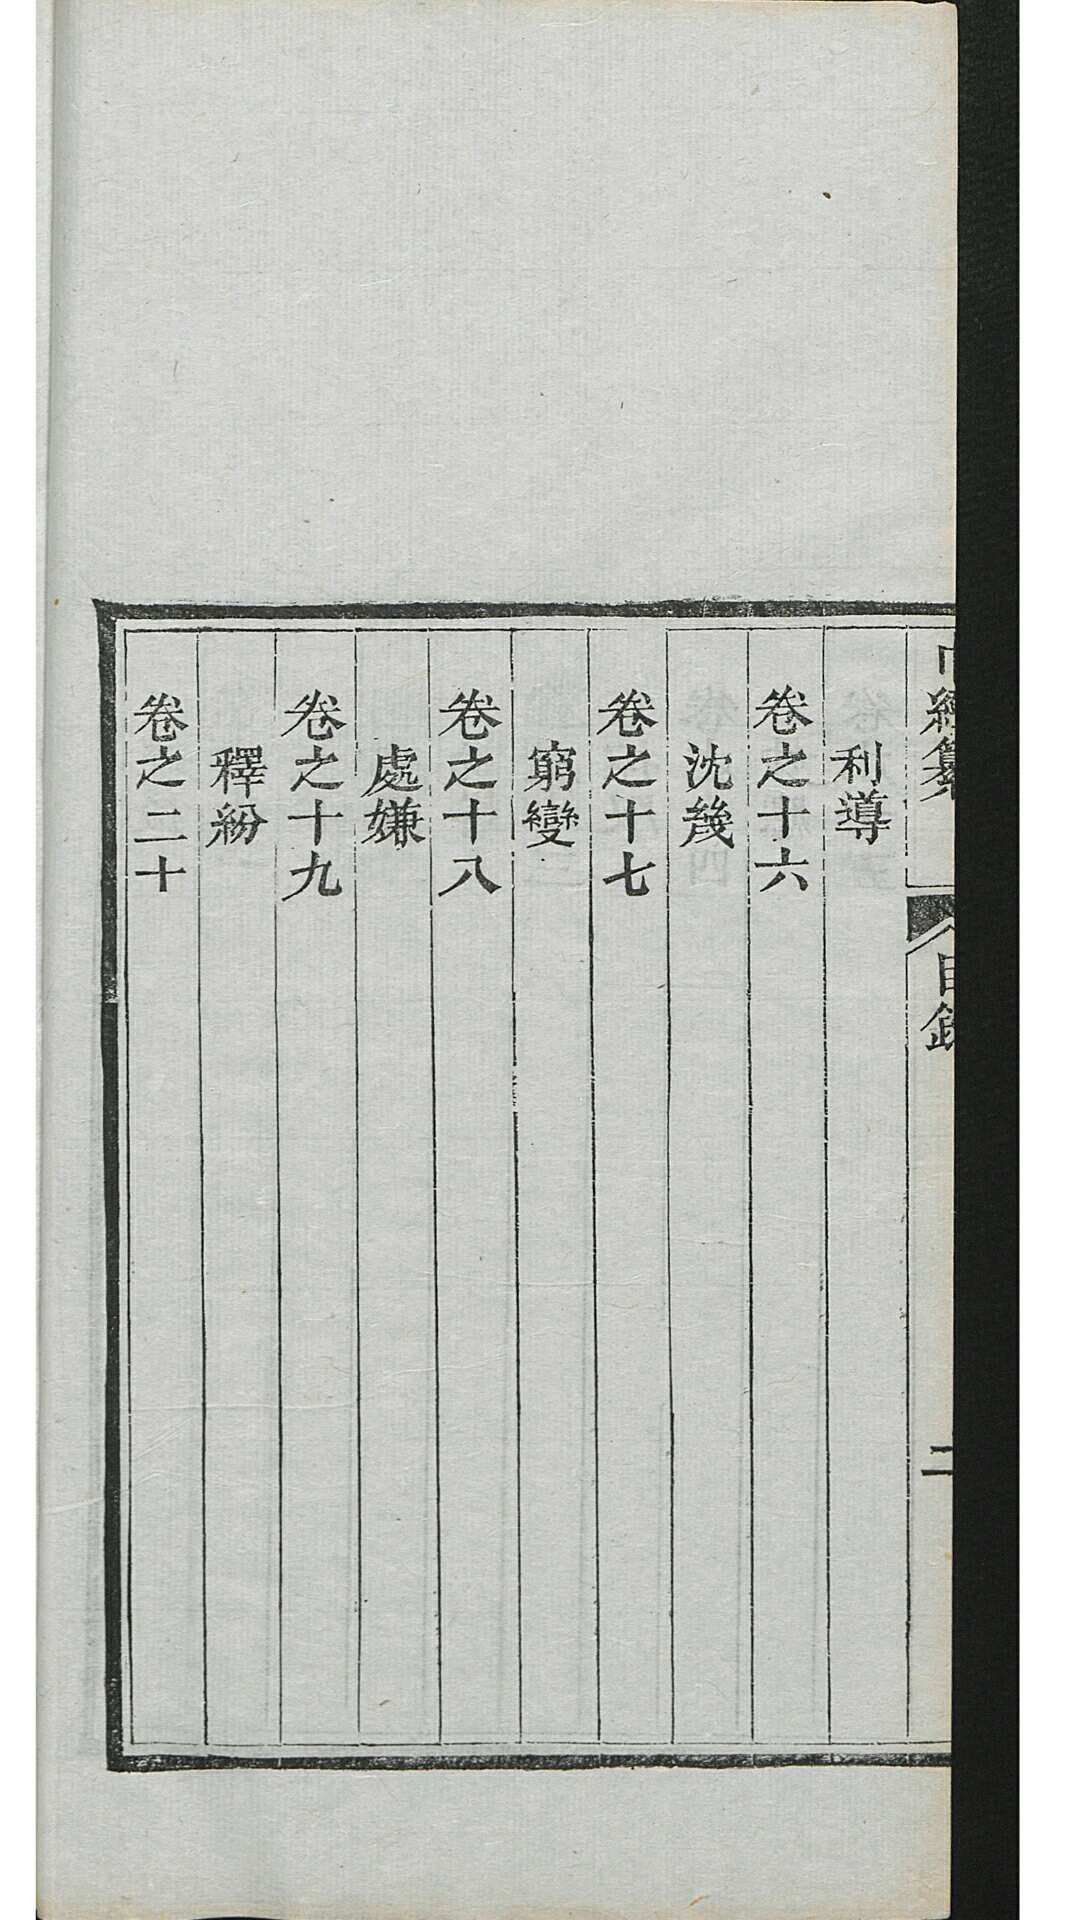 經纂
目錄
二
利導
卷之十六
沈幾
卷之十七
窮變
卷之十八
處嫌
卷之十九
釋紛
卷之二十